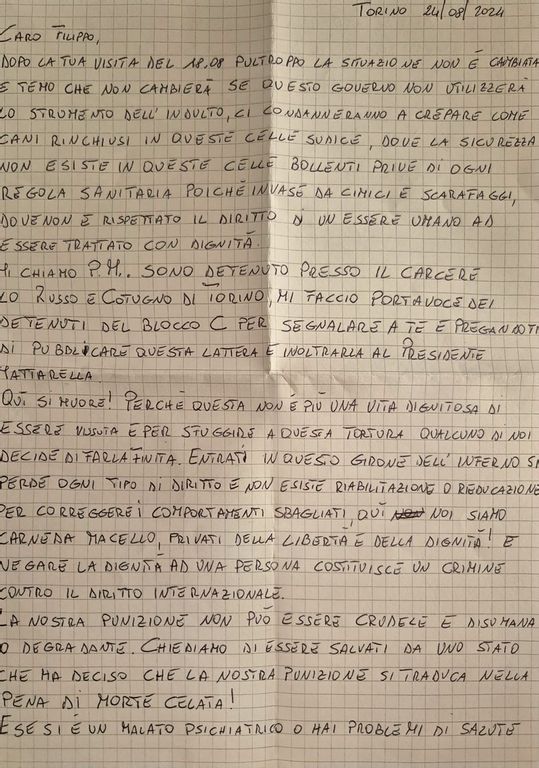 TORINO 24/08/2024
CARO FILIPPO,
DOPO LA TUA VISITA DEL 18.08 PULTROPPO LA SITUAZIONE NON È CAMBIATA
E TEMO CHE NON CAMBIERÀ SE QUESTO GOVERNO NON UTILIZZERÀ
LO STRUMENTO DELL'INDULTO, CI CONDANNERANNO A CREPARE COME
CANI RINCHIUSI IN QUESTE CELLE SUDICE, DOVE LA SICUREZZA
NON ESISTE IN QUESTE CELLE BOLLENTI PRIVE DI OGNI
REGOLA SANITARIA POICHÈ INVASE DA CIMICI E SCARAFAGGI,
DOVE NON È RISPETTATO IL DIRITTO DI UN ESSERE UMANO AD
ESSERE TRATTATO CON DIGNITÀ.
MI CHIAMO P.M.. SONO DETENUTO PRESSO IL CARCERE
LO RUSSO E COTUGNO DI TORINO, MI FACCIO PORTAVOCE DEI
DETENUTI DEL BLOCCO C PER SEGNALARE A TE E PREGANDOTI
DI PUBBLICARE QUESTA LATTERA E INOLTRARLA AL PRESIDENTE
MATTARELLA
QUI SI MUORE! PERCHÈ QUESTA NON È PIÙ UNA VITA DIGNITOSA DI
ESSERE VISSUTA E PER SFUGGIRE A QUESTA TORTURA QUALCUNO DI NOI
DECIDE DI FARLA FINITA. ENTRATI IN QUESTO GIRONE DELL'INFERNO SI
PERDE OGNI TIPO DI DIRITTO E NON ESISTE RIABILITAZIONE O RIEDUCAZIONE
PER CORREGGERE I COMPORTAMENTI SBAGLIATI, QUÌ NOI SIAMO
CARNE DA MACELLO, PRIVATI DELLA LIBERTÀ E DELLA DIGNITÀ! E
NEGARE LA DIGNITÀ AD UNA PERSONA COSTITUISCE UN CRIMINE
CONTRO IL DIRITTO INTERNAZIONALE.
LA NOSTRA PUNIZIONE NON PUÒ ESSERE CRUDELE E DISUMANA
O DEGRADANTE. CHIEDIAMO DI ESSERE SALVATI DA UNO STATO
CHE HA DECISO CHE LA NOSTRA PUNIZIONE SI TRADUCA NELLA
PENA DI MORTE CELATA!
E SE SI È UN MALATO PSICHIATRICO O HAI PROBLEMI DI SALUTE